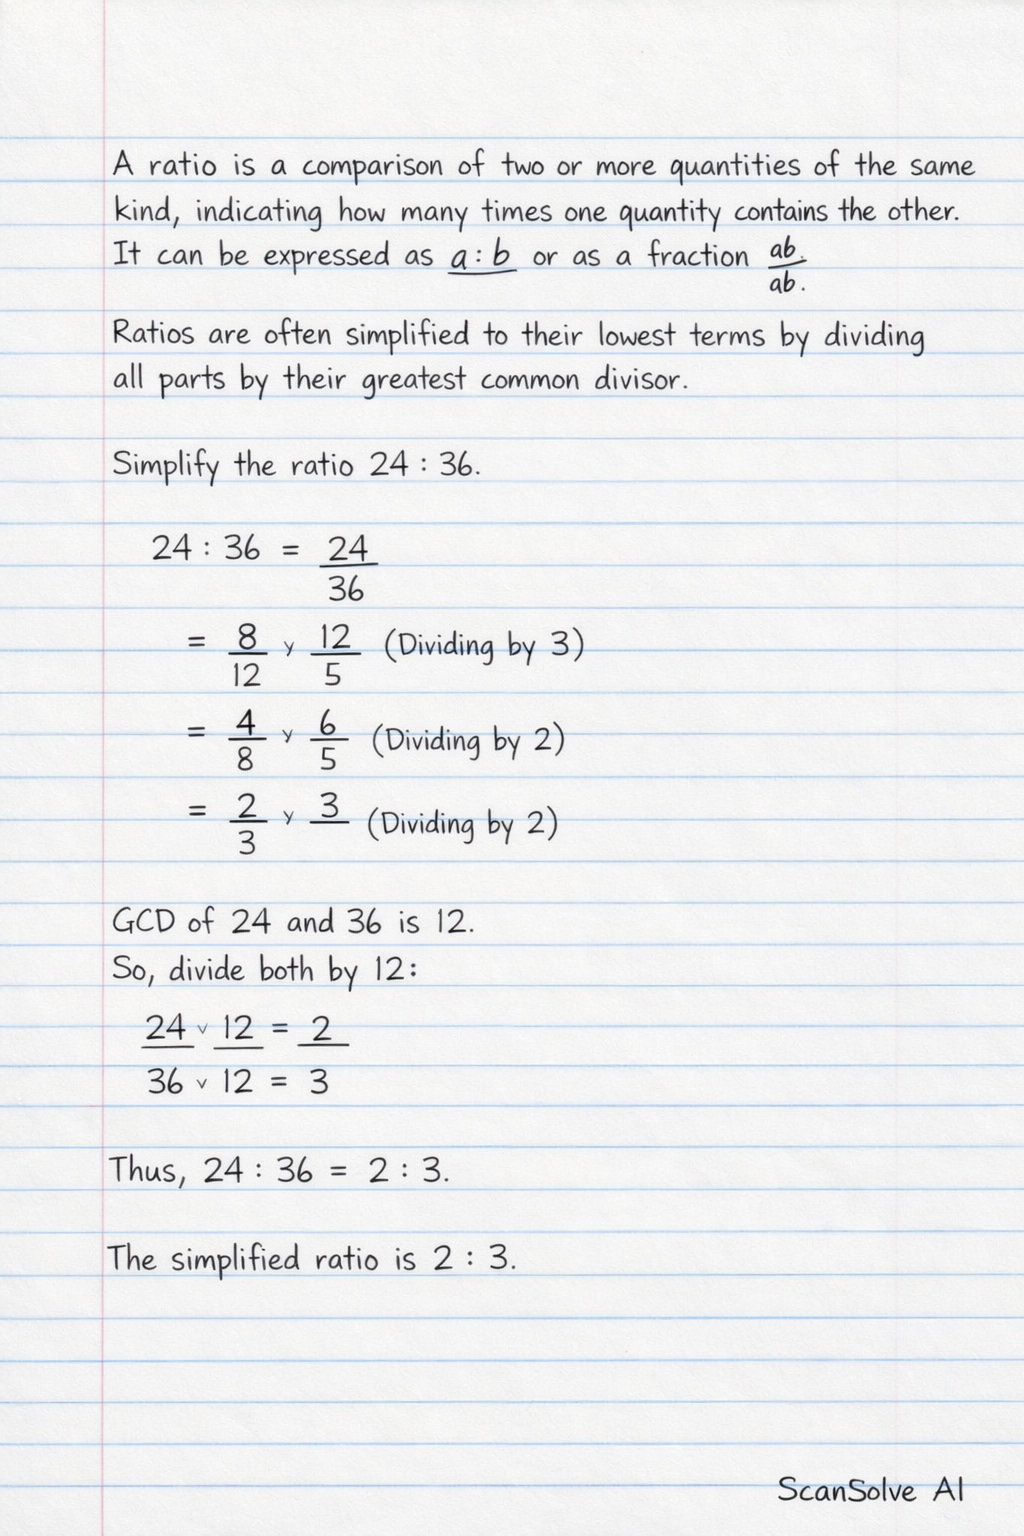 A ratio is a comparison of two or more quantities of the same
kind, indicating how many times one quantity contains the other.
It can be expressed as a : b or as a fraction ab. / ab.
Ratios are often simplified to their lowest terms by dividing
all parts by their greatest common divisor.
Simplify the ratio 24 : 36.
24 : 36 = 24 / 36
= 8 / 12 y 12 / 5 (Dividing by 3)
= 4 / 8 y 6 / 5 (Dividing by 2)
= 2 / 3 y 3 (Dividing by 2)
GCD of 24 and 36 is 12.
So, divide both by 12:
24 v 12 = 2
36 v 12 = 3
Thus, 24 : 36 = 2 : 3.
The simplified ratio is 2 : 3.
ScanSolve AI